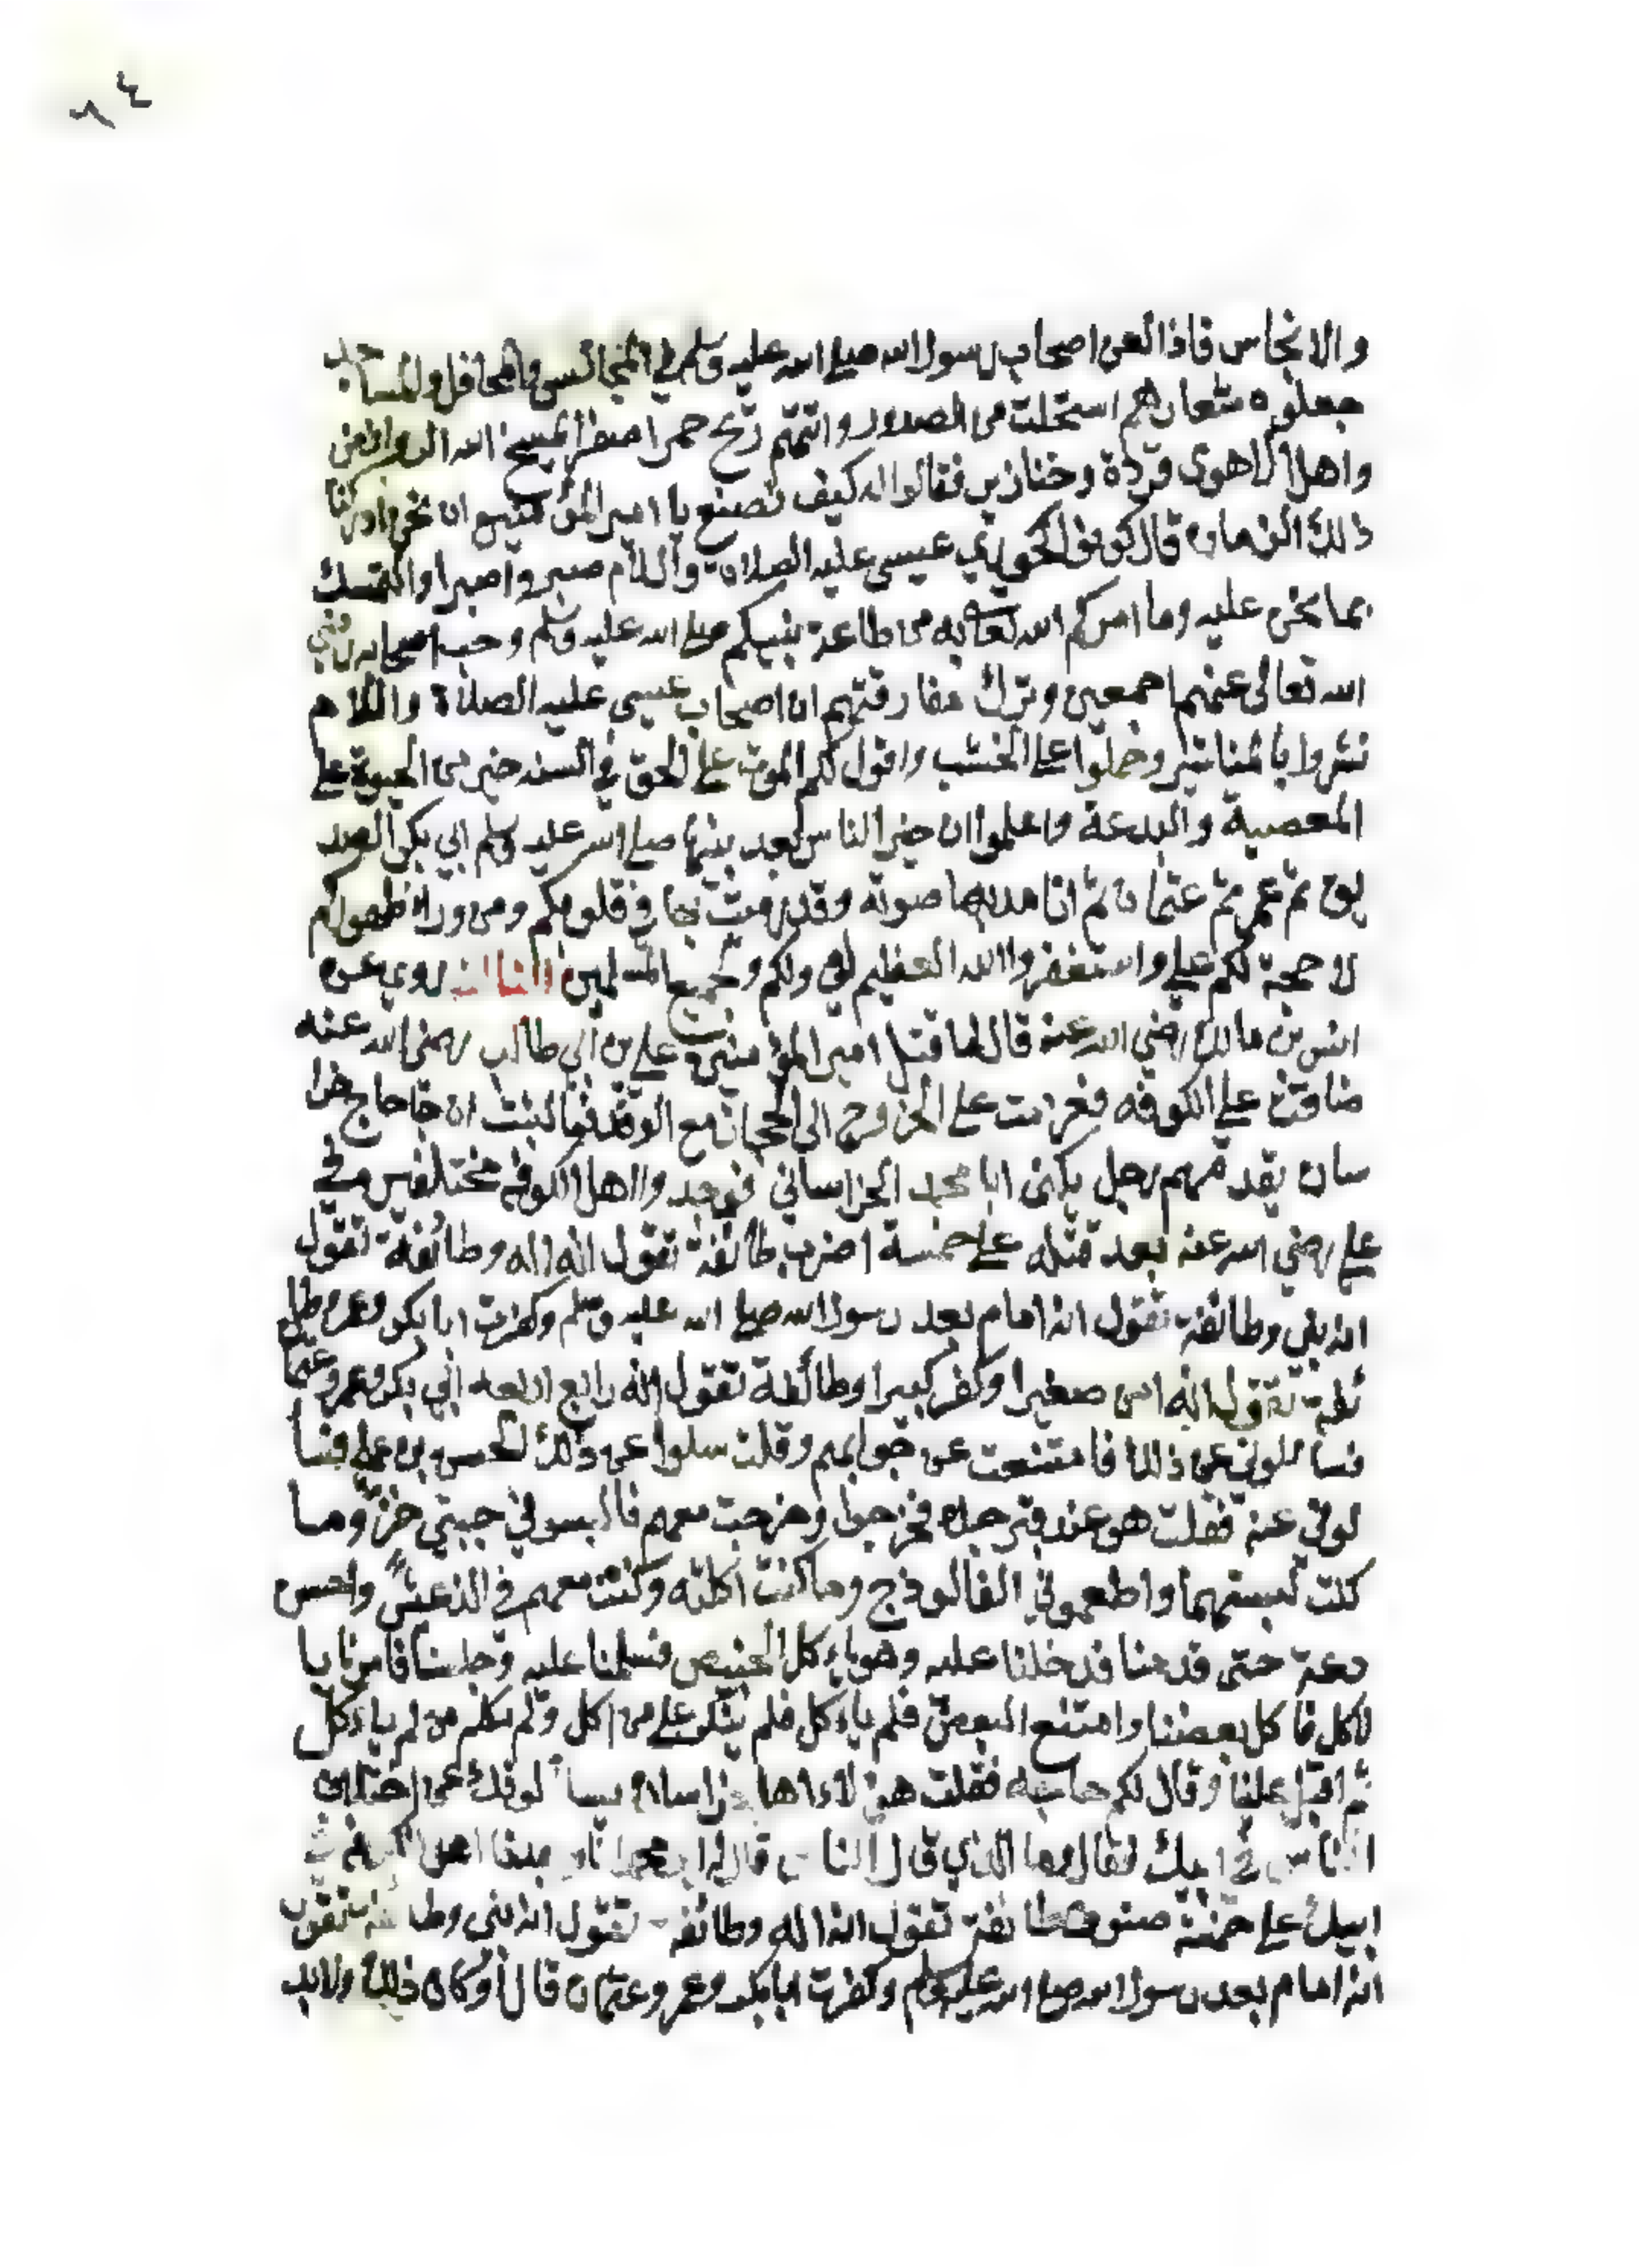 ٦٤
والانجاس فاذا لعن اصحاب رسول الله صلى الله عليه وسلم في المجالس والمحافل والمساجد
جعلوه شعارهم استحلت من الصدور واتتهم ريح حمرا اصفر المسخ الله الروافض
واهل الاهوى قردة وخنازير فقالوا له كيف تصنع يا امير المؤمنين ان نحن ادركنا
ذلك الزمان قال كونوا كحواري عيسى عليه الصلاة والسلام صبروا صبرا والتمسك
بما نحن عليه وما امركم الله تعالى به من طاعة نبيكم صلى الله عليه وسلم وحب اصحابه رضي
الله تعالى عنهم اجمعين وترك مفارقتهم ان اصحاب عيسى عليه الصلاة والسلام
نشروا بالمناشير وحملوا على الخشب واقول لكم الموت على الحق في السنه خير من الحيوة على
المعصية والبدعة واعلموا ان خير الناس بعد نبيها صلى الله عليه وسلم ابي بكر الصد
يق ثم عمر ثم عثمان ثم انا مد بها صوته وقد رميت بها في قلوبكم ومن ورا ظهوركم
لا حجة لكم علي واستغفروا الله العظيم لي ولكم ولجميع المسلمين الثالث روي عن
انس بن مالك رضي الله عنه قال لما قتل امير المؤمنين علي بن ابي طالب رضي الله عنه
ضاقت علي الكوفه فعزمت على الخروج الى الحجاز مع الوفد فما لبثت ان جا حاج خرا
سان يقدمهم رجل يكنى ابا محمد الخراساني فوجدوا اهل الكوفه مختلفين في
علي رضي الله عنه بعد قتله على خمسة اضرب طائفة تقول انه اله وطائفة تقول
انه نبي وطائفة تقول انه امام بعد رسول الله صلى الله عليه وسلم وكفرت ابا بكر وعمر وطا
ئفة تقول انه امن صغيرا وكفر كبيرا وطائفة تقول انه رابع اربعه ابي بكر وعمر وعثما
فسا لوني عن ذلك فامتنعت عن جوابهم وقلت سلوا عن ذلك الحسن بن علي فسا
لوني عنه فقلت هو عند قبر جده فخرجوا وخرجت معهم فالبسوني جبتي خز وما
كنت لبستهما واطعموني الفالوذج وما كنت اكلته وكنت معهم في الذعش واحسن
دعة حتى قدمنا فدخلنا عليه وهو ياءكل الخبيص فسلمنا عليه وجلسنا فامرنا با
لاكل فاكل بعضنا وامتنع البعض فلم ياءكل فلم ينكر على من اكل ولم يكلم من لم ياءكل
ثم اقبل علينا وقال لكم حاجه فقلت هؤلاء اهل خراسان يسألونك عن اختلاف
الناس في ابيك فقال وما الذي قال الناس قال له ابو محمد انا وجدنا اهل الكوفه في
ابيك على خمسة صنوف طائفة تقول انه اله وطائفة تقول انه نبي وطائفة تقول
انه امام بعد رسول الله صلى الله عليه وسلم وكفرت ابا بكر وعمر وعثمان قال أوكان ذلك ولابد